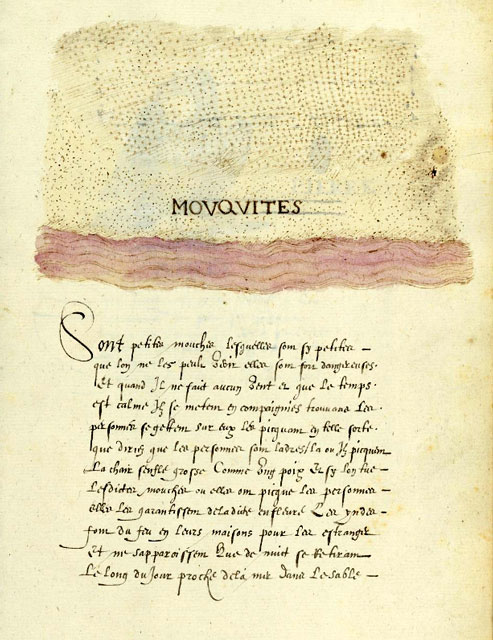 MOVQVITES
Sont petites mouches lesquelles sont sy petites
que lon ne les peult veoir elles sont fort dangereuses
Et quand Il ne fait aucun vent et que le temps
est calme Ilz se metent en compaignies trouvans les
personnes se gettent sur eux les picquant en telle sorte
que diriez que les personnes sont ladres / la ou Ilz picquent
La chair senfle grosse Comme ung poix Et sy lon tue
Lesdictes mouches ou elles ont picque les personnes
elles les garantissent deladicte enfleure Les yndes
font du feu en leurs maisons pour les estranger
Et ne sapparoissent Que de nuict se Retirant
Le long du Jour proche dela mer dans le sable